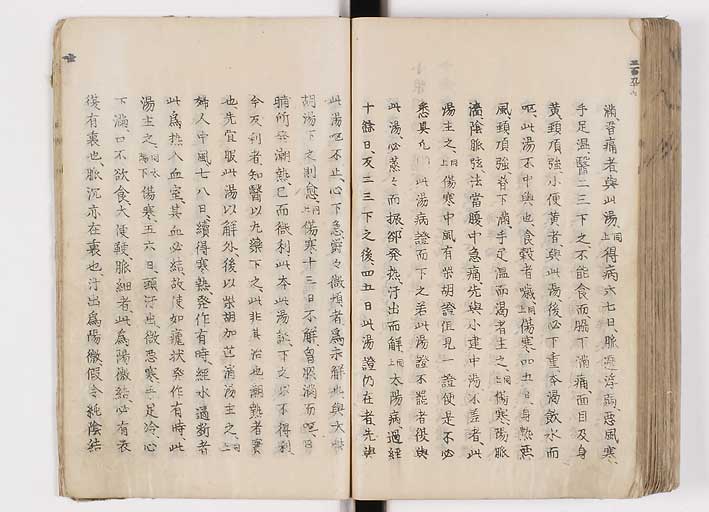 滿、脅痛者與此湯、上同得病六七日、脈遲浮弱、惡風寒、
手足溫、醫二三下之、不能食而脇下滿痛、面目及身
黃、頸項強、小便黃者、與此湯、後必下重、本渴飲水而
嘔、此湯不中與也、食穀者噦、上同傷寒四五日、身熱惡
風、頸項強、脅下滿、手足溫而渴者主之、上同傷寒陽脈
濇、陰脈弦、法當腹中急痛、先與小建中湯、不差者、此
湯主之、上同傷寒中風有柴胡證、但見一證便是、不必
悉具、凡此湯病證而下之、若此湯證不罷者、復與
此湯、必蒸々而振、卻發熱汗出而解、上同太陽病、過經
十餘日、反二三下之、後四五日、此湯證仍在者、先與
此湯、嘔不止、心下急、鬱々微煩者、爲未解也、與大柴
胡湯下之則愈、上同傷寒十三日不解、胸脇滿而嘔、日
晡所發潮熱、已而微利、此本此湯證、下之
今反利者、知醫以丸藥下之、此非其治也、潮熱者實
也、先宜服此湯以解外、後以柴胡加芒消湯主之、上同
婦人中風七八日、續得寒熱、發作有時、經水適斷者、
此爲熱入血室、其血必結、故使如瘧狀、發作有時、此
湯主之、傷寒五六日、頭汗出、微惡寒、手足冷、心
下滿、口不欲食、大便鞕、脈細者、此爲陽微結、必有表
復有裏也、脈沉亦在裏也、汗出爲陽微、假令純陰結